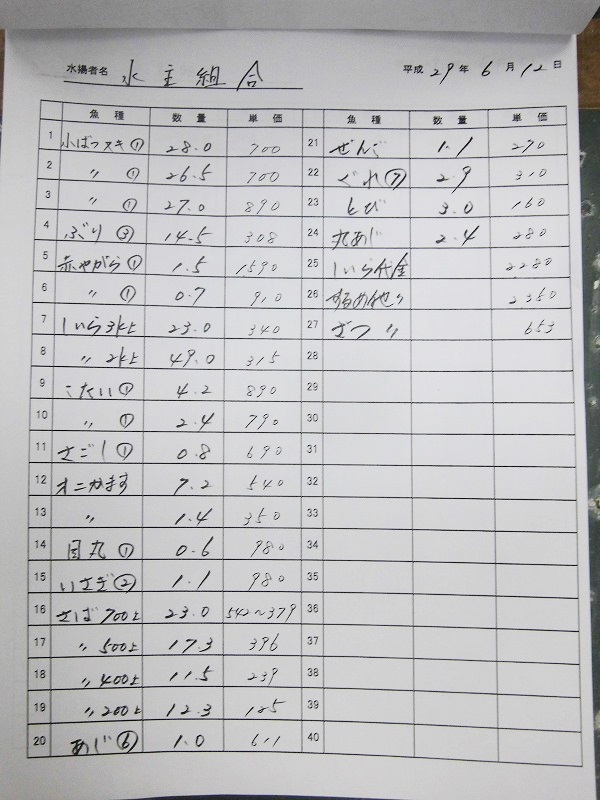 水揚者名 水主組合 平成 29 年 6 月 12 日
魚種 数量 単価 魚種 数量 単価
1 小ばつヌキ① 28.0 700 21 ぜんご 1.1 270
2 〃 ① 26.5 700 22 ぐれ⑦ 2.9 310
3 〃 ① 27.0 890 23 とび 3.0 160
4 ぶり③ 14.5 308 24 丸あじ 2.4 280
5 赤やがら① 1.5 1590 25 しいら代金 2280
6 〃 ① 0.7 910 26 するめ他〃 2350
7 しいら3k上 23.0 340 27 ざつ 〃 653
8 〃 2k上 49.0 315 28
9 こたい① 4.2 890 29
10 〃 ① 2.4 790 30
11 さごし① 0.8 690 31
12 オニかます 7.2 540 32
13 〃 1.4 350 33
14 目丸① 0.6 980 34
15 いさぎ② 1.1 980 35
16 さば700上 23.0 542〜379 36
17 〃 500上 17.3 396 37
18 〃 400上 11.5 239 38
19 〃 200上 12.3 185 39
20 あじ⑥ 1.0 611 40